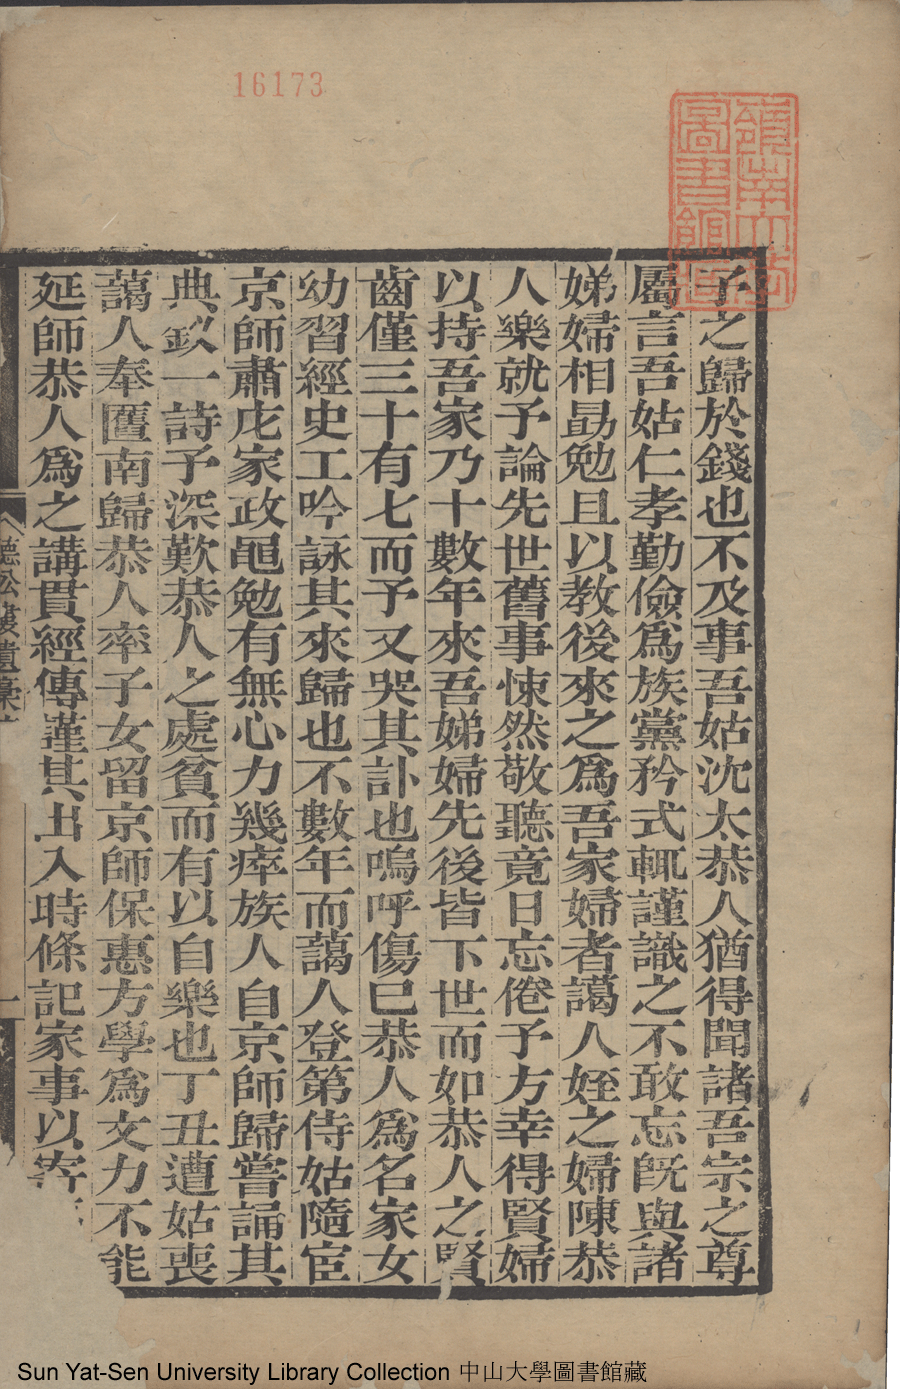 16173
嶺南大學
圖書館藏
予之歸於錢也不及事吾姑沈太恭人猶得聞諸吾宗之尊
屬言吾姑仁孝勤儉為族黨矜式輒謹識之不敢忘旣與諸
娣婦相勗勉且以教後來之為吾家婦者藹人姪之婦陳恭
人樂就予論先世舊事悚然敬聽竟日忘倦予方幸得賢婦
以持吾家乃十數年來吾娣婦先後皆下世而如恭人之賢
齒僅三十有七而予又哭其訃也嗚呼傷巳恭人為名家女
幼習經史工吟詠其來歸也不數年而藹人登第侍姑隨宦
京師肅庀家政黽勉有無心力幾瘁族人自京師歸嘗誦其
典釵一詩予深歎恭人之處貧而有以自樂也丁丑遭姑喪
藹人奉匶南歸恭人率子女留京師保惠方學為文力不能
延師恭人為之講貫經傳謹其出入時條記家事以寄
聽松樓遺稾
一
Sun Yat-Sen University Library Collection 中山大學圖書館藏